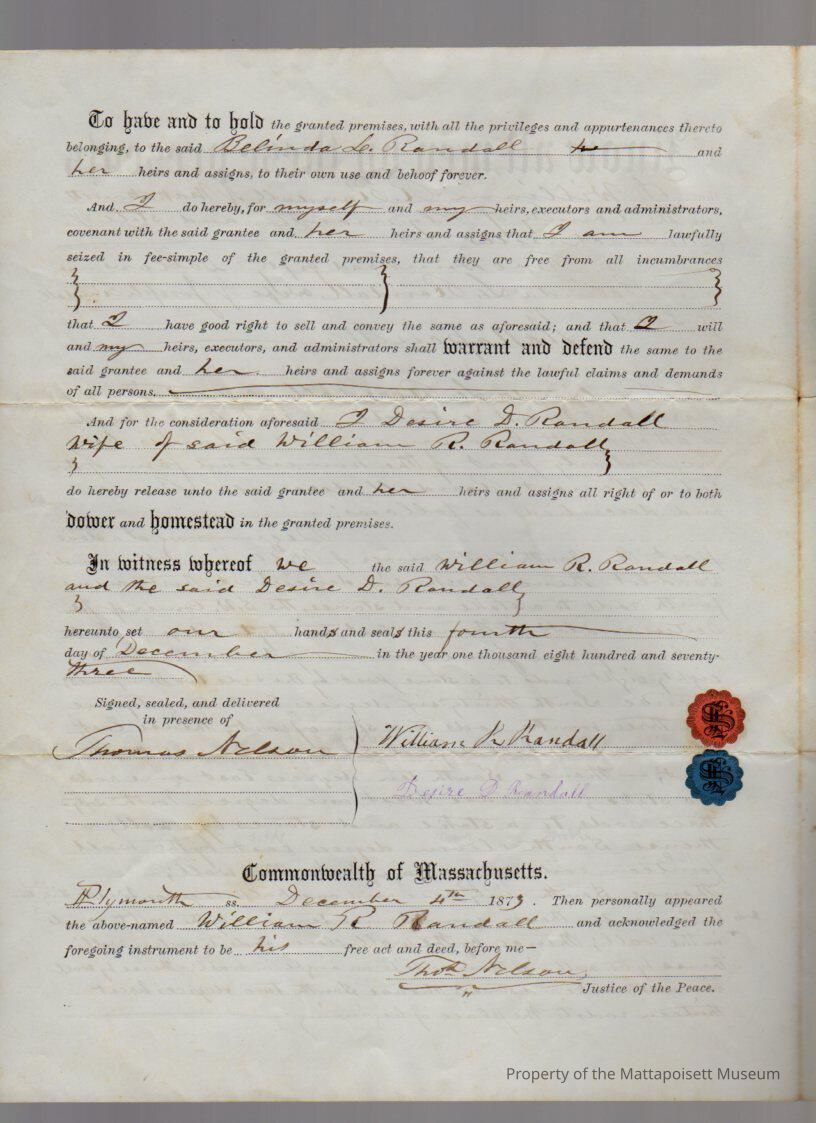 To have and to hold the granted premises, with all the privileges and appurtenances thereto
belonging, to the said Belinda L. Randall and
her heirs and assigns, to their own use and behoof forever.
And I do hereby, for myself and my heirs, executors and administrators,
covenant with the said grantee and her heirs and assigns that I am lawfully
seized in fee-simple of the granted premises, that they are free from all incumbrances
that I have good right to sell and convey the same as aforesaid; and that I will
and my heirs, executors, and administrators shall warrant and defend the same to the
said grantee and her heirs and assigns forever against the lawful claims and demands
of all persons.
And for the consideration aforesaid I Desire D. Randall
wife of said William R. Randall
do hereby release unto the said grantee and her heirs and assigns all right of or to both
dower and homestead in the granted premises.
In witness whereof we the said William R. Randall
and the said Desire D. Randall
hereunto set our hands and seals this fourth
day of December in the year one thousand eight hundred and seventy-
three
Signed, sealed, and delivered
in presence of
Thomas Nelson
William R Randall
Desire D Randall
Commonwealth of Massachusetts.
Plymouth ss. December 4th 1873. Then personally appeared
the above-named William R. Randall and acknowledged the
foregoing instrument to be his free act and deed, before me—
Thos Nelson
Justice of the Peace.
Property of the Mattapoisett Museum